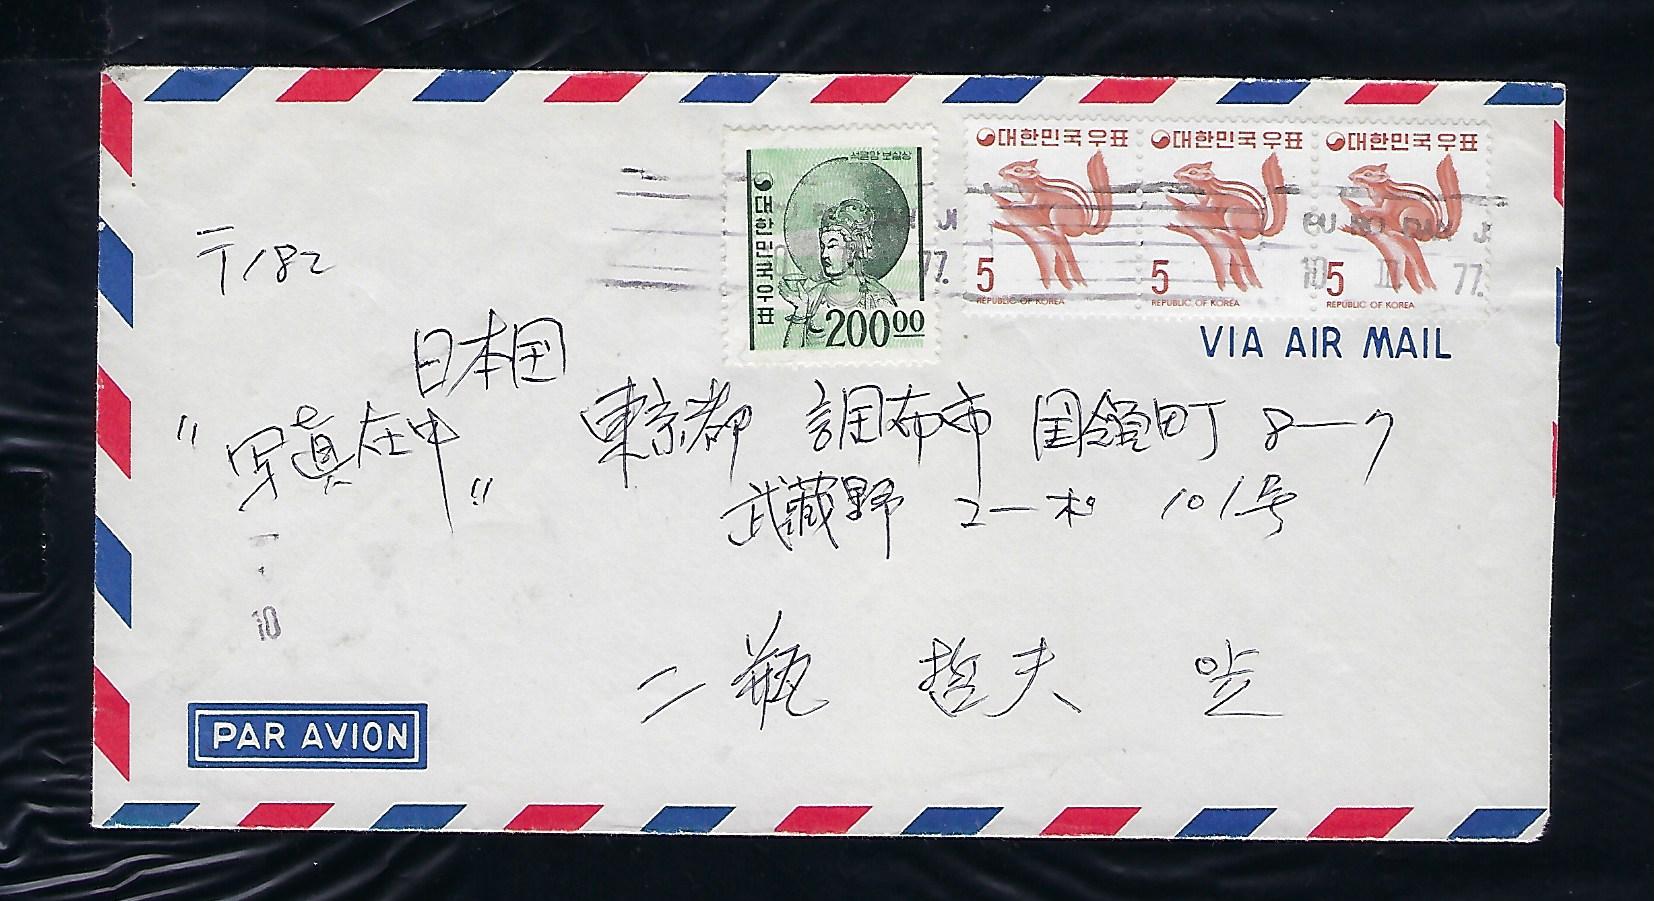 석굴암 보살상
대한민국우표
200 00
대한민국우표 대한민국우표 대한민국우표
5 5 5
REPUBLIC OF KOREA REPUBLIC OF KOREA REPUBLIC OF KOREA
77.
10 II 77.
VIA AIR MAIL
〒182
日本国
東京都 調布市 国領町 8-7
"写真在中"
武蔵野 2-
101号
10
二瓶 哲夫 앞
PAR AVION